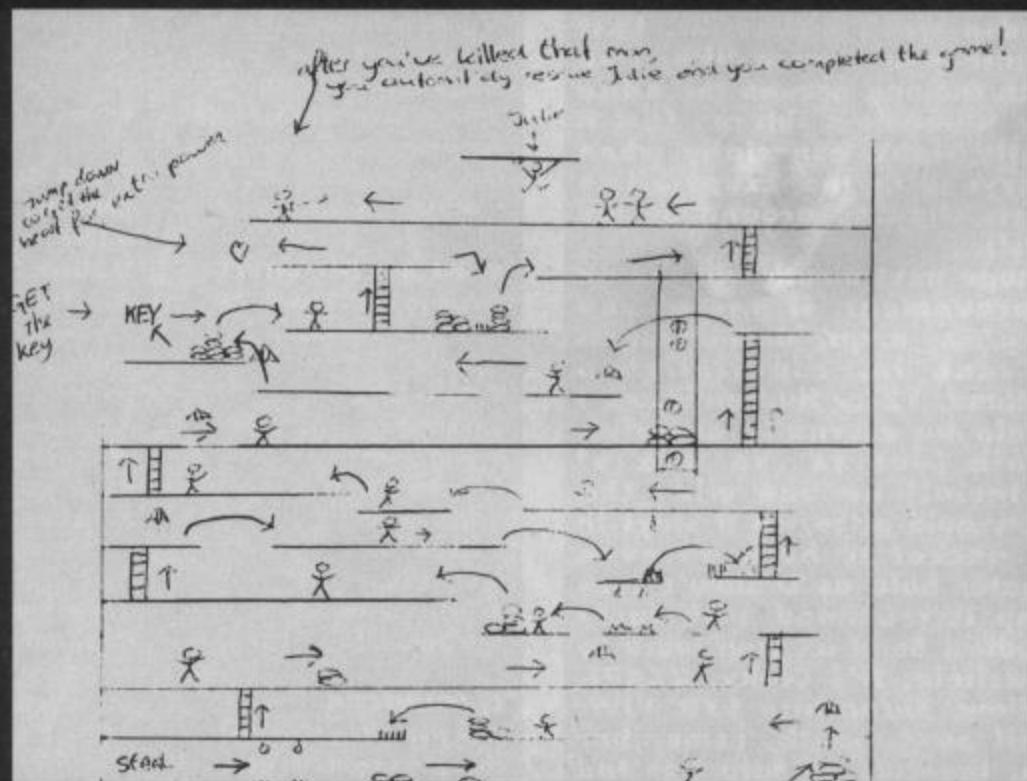 after you've killed that man,
you automitly rescue Julie and you completed the game!
Julie
jump down
the
extra power
GET
the
key
KEY
START